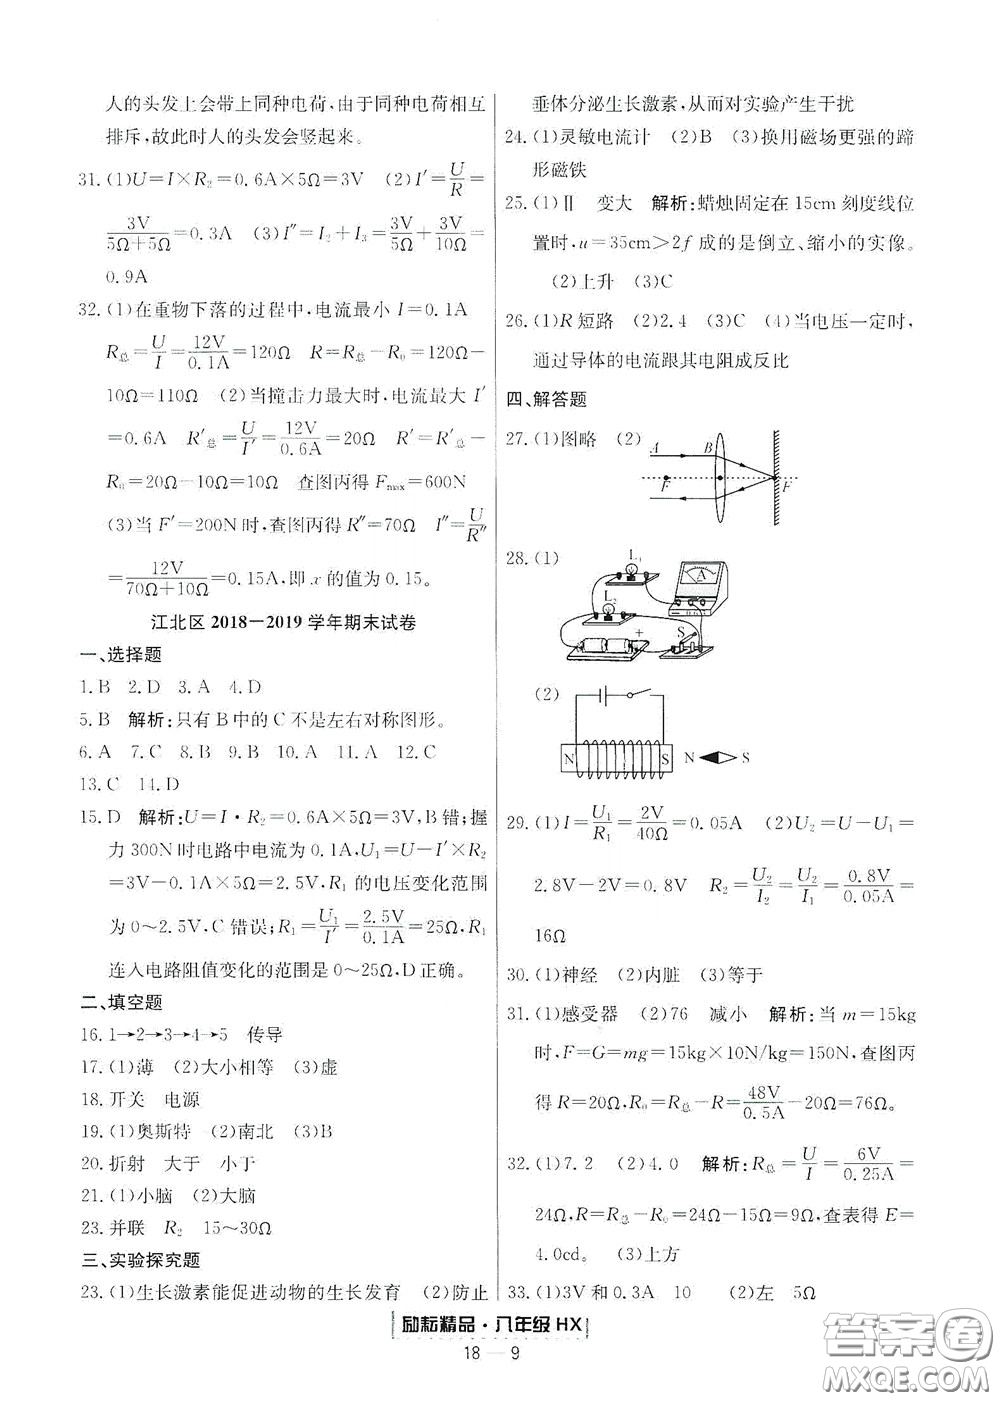 人的头发上会带上同种电荷,由于同种电荷相互
排斥,故此时人的头发会竖起来。
31.(1)U=I×R₂=0.6A×5Ω=3V (2)I′=U/R=
3V/(5Ω+5Ω)=0.3A (3)I″=I₂+I₃=3V/5Ω+3V/10Ω=
0.9A
32.(1)在重物下落的过程中,电流最小 I=0.1A
R总=U/I=12V/0.1A=120Ω R=R总-R₀=120Ω-
10Ω=110Ω (2)当撞击力最大时,电流最大 I′
=0.6A R′总=U/I′=12V/0.6A=20Ω R′=R′总-
R₀=20Ω-10Ω=10Ω 查图丙得 Fmax=600N
(3)当 F′=200N时,查图丙得 R″=70Ω I″=U/R″
=12V/(70Ω+10Ω)=0.15A,即 x 的值为 0.15。
江北区 2018-2019 学年期末试卷
一、选择题
1.B 2.D 3.A 4.D
5.B 解析:只有 B 中的 C 不是左右对称图形。
6.A 7.C 8.B 9.B 10.A 11.A 12.C
13.C 14.D
15.D 解析:U=I·R₂=0.6A×5Ω=3V,B 错;握
力300N时电路中电流为 0.1A,U₁=U-I′×R₂
=3V-0.1A×5Ω=2.5V,R₁ 的电压变化范围
为 0~2.5V,C 错误;R₁=U₁/I′=2.5V/0.1A=25Ω,R₁
连入电路阻值变化的范围是 0~25Ω,D 正确。
二、填空题
16.1→2→3→4→5 传导
17.(1)薄 (2)大小相等 (3)虚
18.开关 电源
19.(1)奥斯特 (2)南北 (3)B
20.折射 大于 小于
21.(1)小脑 (2)大脑
23.并联 R₂ 15~30Ω
三、实验探究题
23.(1)生长激素能促进动物的生长发育 (2)防止
垂体分泌生长激素,从而对实验产生干扰
24.(1)灵敏电流计 (2)B (3)换用磁场更强的蹄
形磁铁
25.(1)Ⅱ 变大 解析:蜡烛固定在 15cm 刻度线位
置时,u=35cm>2f 成的是倒立、缩小的实像。
(2)上升 (3)C
26.(1)R 短路 (2)2.4 (3)C (4)当电压一定时,
通过导体的电流跟其电阻成反比
四、解答题
27.(1)图略 (2)
A B
F F
28.(1)
L₁
A
L₂
+ S
(2)
N S N S
29.(1)I=U₁/R₁=2V/40Ω=0.05A (2)U₂=U-U₁=
2.8V-2V=0.8V R₂=U₂/I₂=U₂/I₁=0.8V/0.05A=
16Ω
30.(1)神经 (2)内脏 (3)等于
31.(1)感受器 (2)76 减小 解析:当 m=15kg
时,F=G=mg=15kg×10N/kg=150N,查图丙
得 R=20Ω,R₀=R总-R=48V/0.5A-20Ω=76Ω。
32.(1)7.2 (2)4.0 解析:R总=U/I=6V/0.25A=
24Ω,R=R总-R₀=24Ω-15Ω=9Ω,查表得 E=
4.0cd。 (3)上方
33.(1)3V 和 0.3A 10 (2)左 5Ω
励耘精品·八年级 HX
18—9
答案圈
MXQE.COM